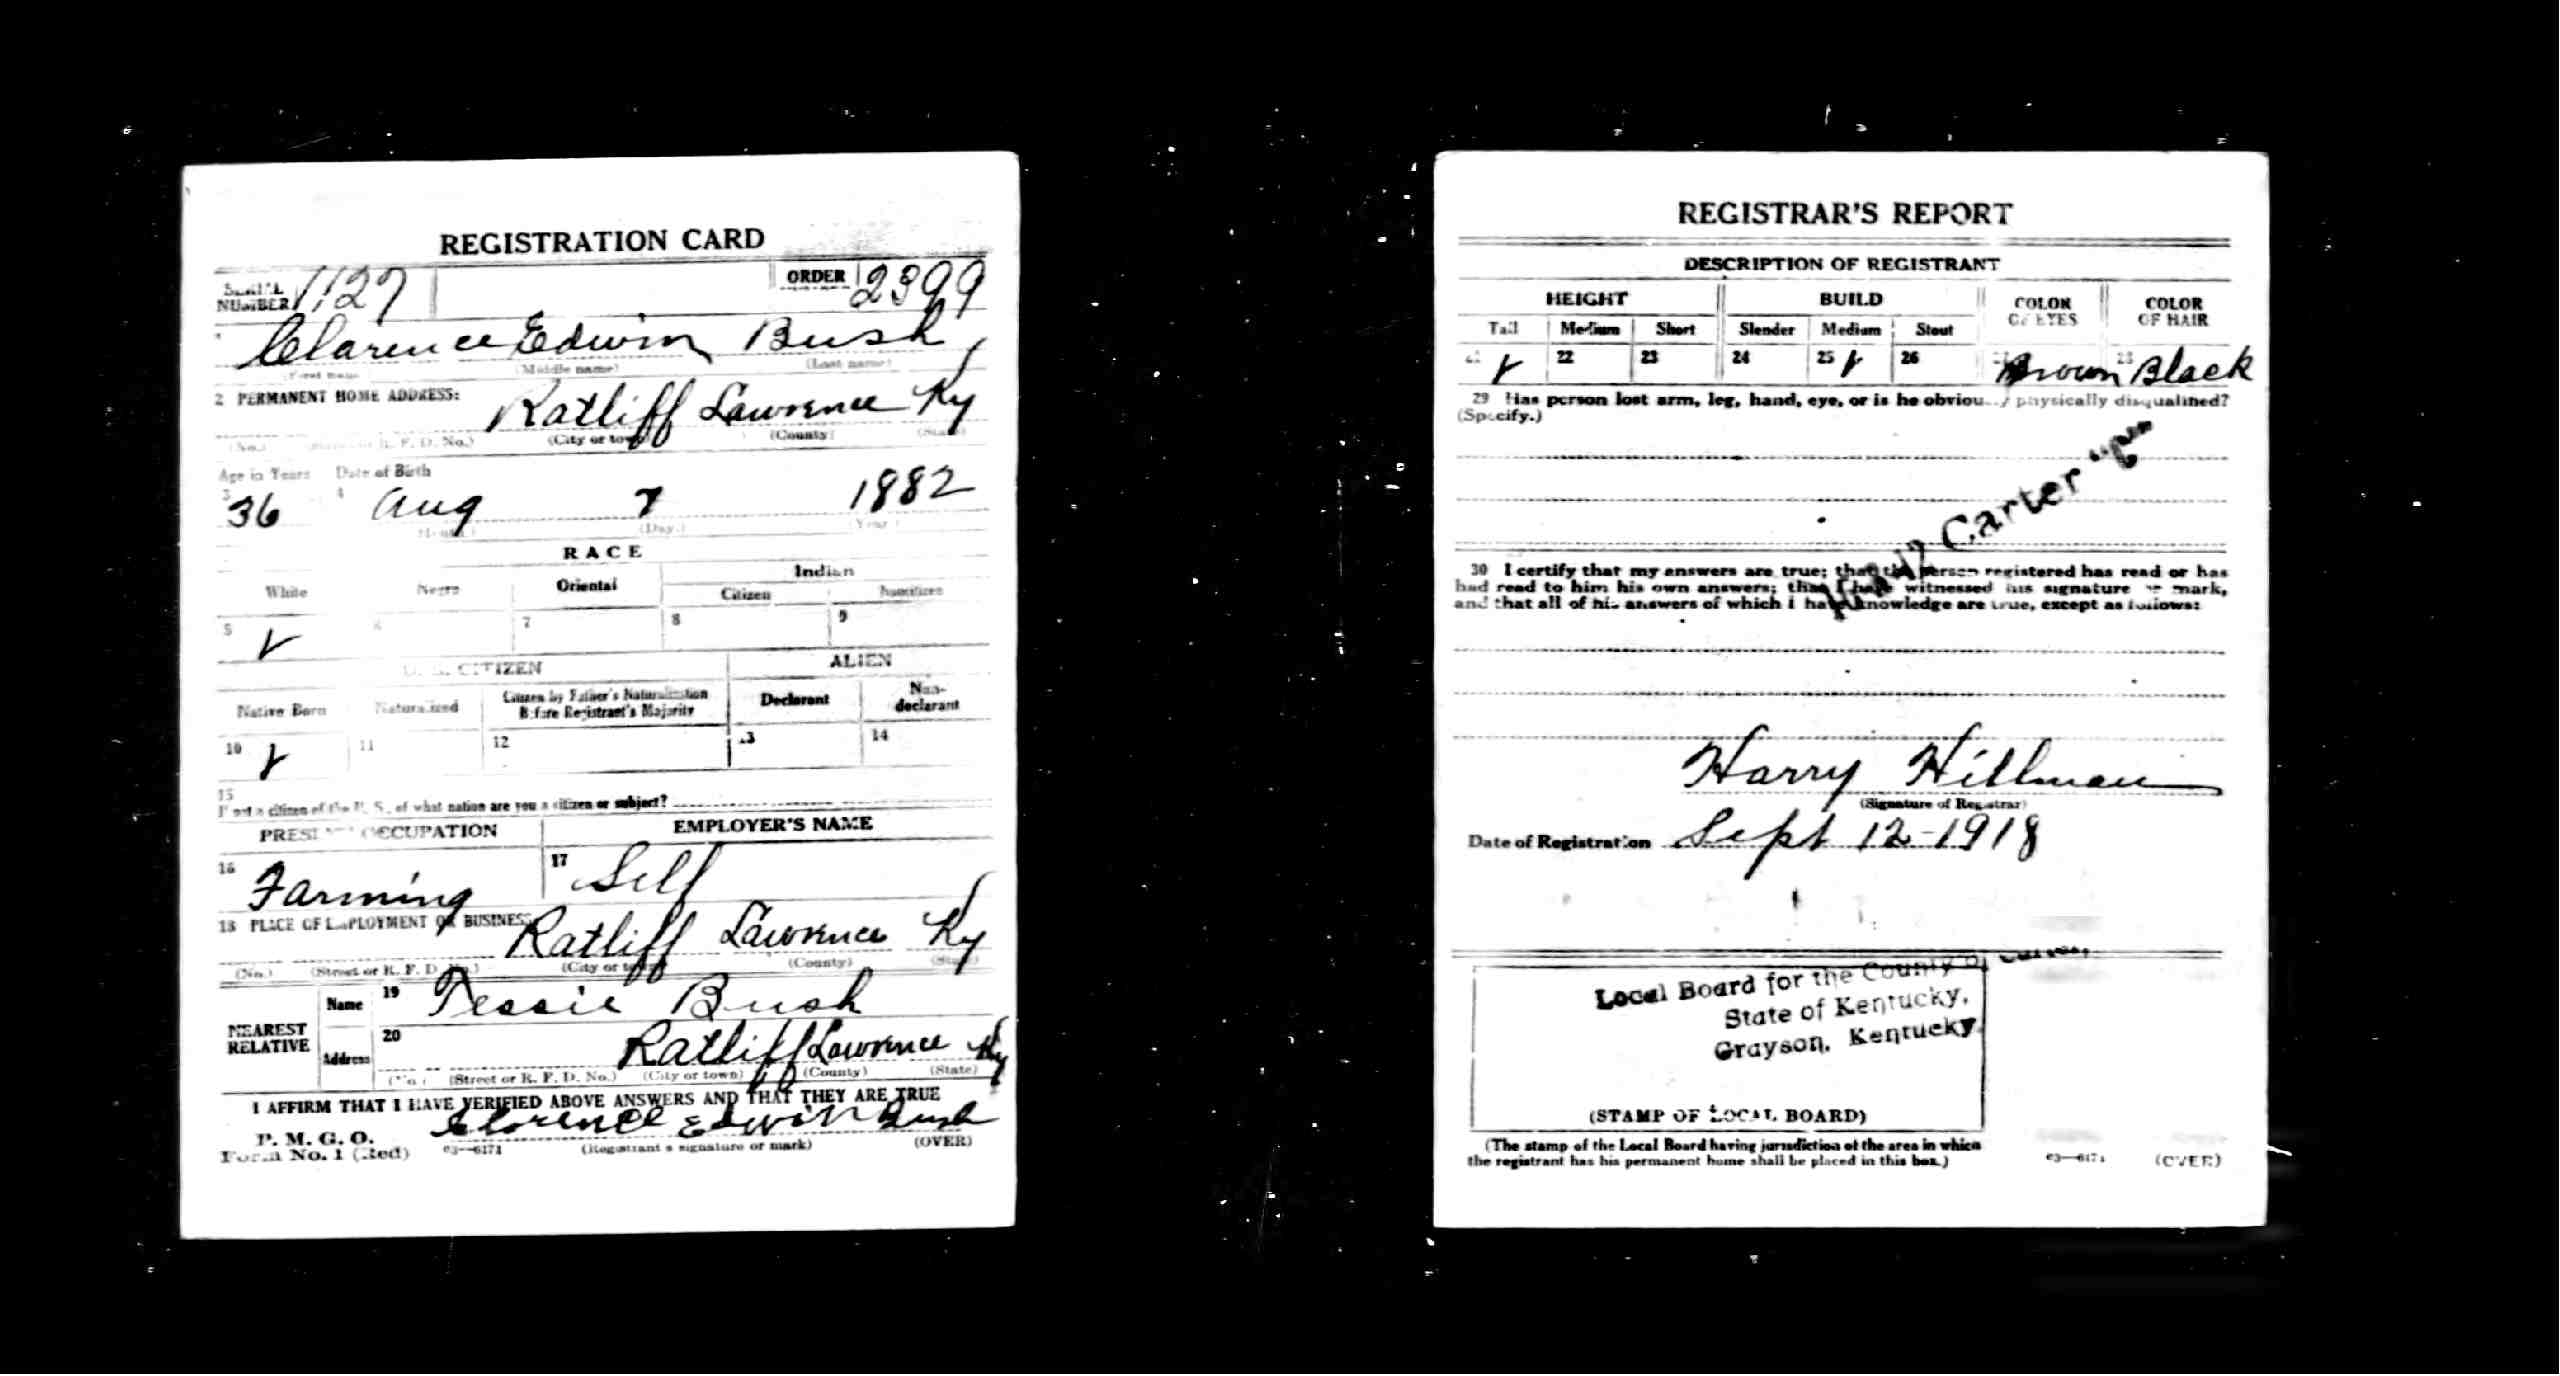 REGISTRATION CARD
SERIAL NUMBER 1127 ORDER 2399
Clarence Edwin Bush
(First name) (Middle name) (Last name)
2 PERMANENT HOME ADDRESS:
Ratliff Lawrence Ky
(No.) (Street or R. F. D. No.) (City or town) (County) (State)
Age in Years Date of Birth
3 36 4 Aug 7 1882
(Month.) (Day.) (Year.)
RACE
White Negro Oriental Indian
Citizen Noncitizen
5 6 7 8 9
U. S. CITIZEN ALIEN
Native Born Naturalized Citizen by Father's Naturalization Before Registrant's Majority Declarant Non-declarant
10 11 12 13 14
15
If not a citizen of the U. S., of what nation are you a citizen or subject?
PRESENT OCCUPATION EMPLOYER'S NAME
16 Farming 17 Self
18 PLACE OF EMPLOYMENT OR BUSINESS
Ratliff Lawrence Ky
(No.) (Street or R. F. D. No.) (City or town) (County) (State)
NEAREST RELATIVE
Name 19 Tessie Bush
Address 20 Ratliff Lawrence Ky
(No.) (Street or R. F. D. No.) (City or town) (County) (State)
I AFFIRM THAT I HAVE VERIFIED ABOVE ANSWERS AND THAT THEY ARE TRUE
Clarence Edwin Bush
P. M. G. O.
Form No. 1 (Red) 03—6171 (Registrant's signature or mark) (OVER)
REGISTRAR'S REPORT
DESCRIPTION OF REGISTRANT
HEIGHT BUILD COLOR OF EYES COLOR OF HAIR
Tall Medium Short Slender Medium Stout
21 22 23 24 25 26 27 Brown 28 Black
29 Has person lost arm, leg, hand, eye, or is he obviously physically disqualified?
(Specify.)
Carter "C"
30 I certify that my answers are true; that the person registered has read or has
had read to him his own answers; that I have witnessed his signature or mark,
and that all of his answers of which I have knowledge are true, except as follows:
Harry Hillman
(Signature of Registrar)
Date of Registration Sept 12-1918
Local Board for the County of Carter,
State of Kentucky,
Grayson, Kentucky.
(STAMP OF LOCAL BOARD)
(The stamp of the Local Board having jurisdiction of the area in which
the registrant has his permanent home shall be placed in this box.)
03—6171 (OVER)